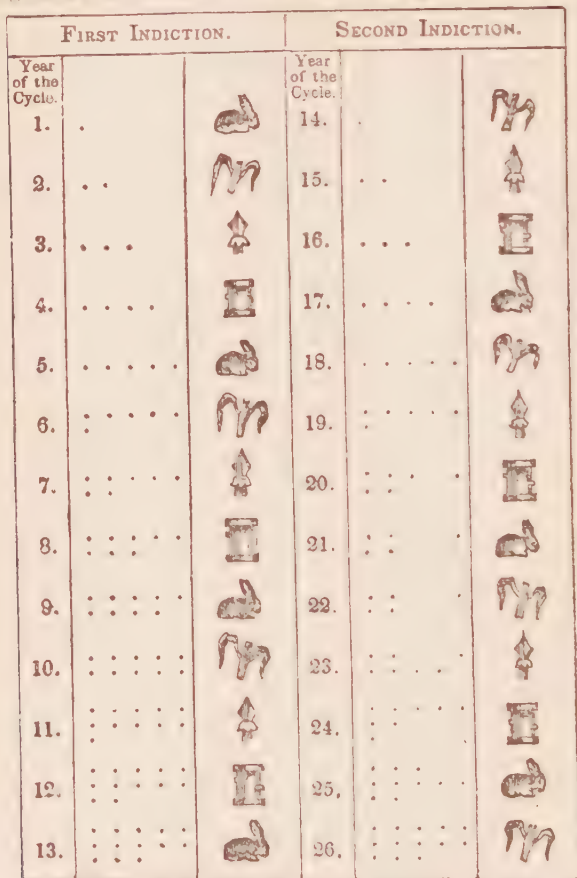 FIRST INDICTION. SECOND INDICTION.
Year of the Cycle. Year of the Cycle.
1. 14.
2. 15.
3. 16.
4. 17.
5. 18.
6. 19.
7. 20.
8. 21.
9. 22.
10. 23.
11. 24.
12. 25.
13. 26.